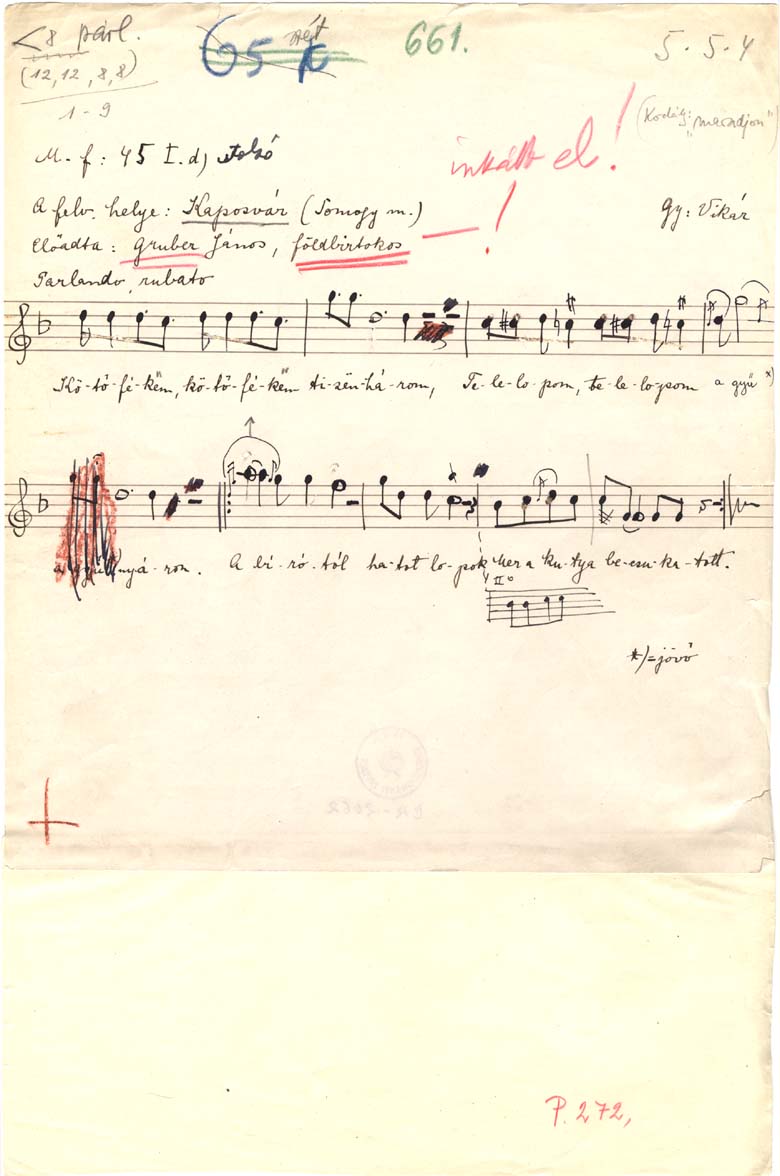 < 8 párl.
(12,12,8,8)
1-9
65 661. 5.5.4
(Kodály: „maradjon")
M.-f: 45 I.d) utolsó
inkább el!
A felv. helye: Kaposvár (Somogy m.) Gy: Vikár
Előadta: Gruber János, földbirtokos — !
Parlando, rubato
Kö-tő-fé-këm, kö-tő-fé-këm ti-zën-há-rom, Te-le-lo-pom, te-le-lo-pom a gyű *)
nyá-ron. A bí-ró-tól ha-tot lo-pok Mer a ku-tya be-csu-ka-tott.
II°
*)=jövő
P. 272,